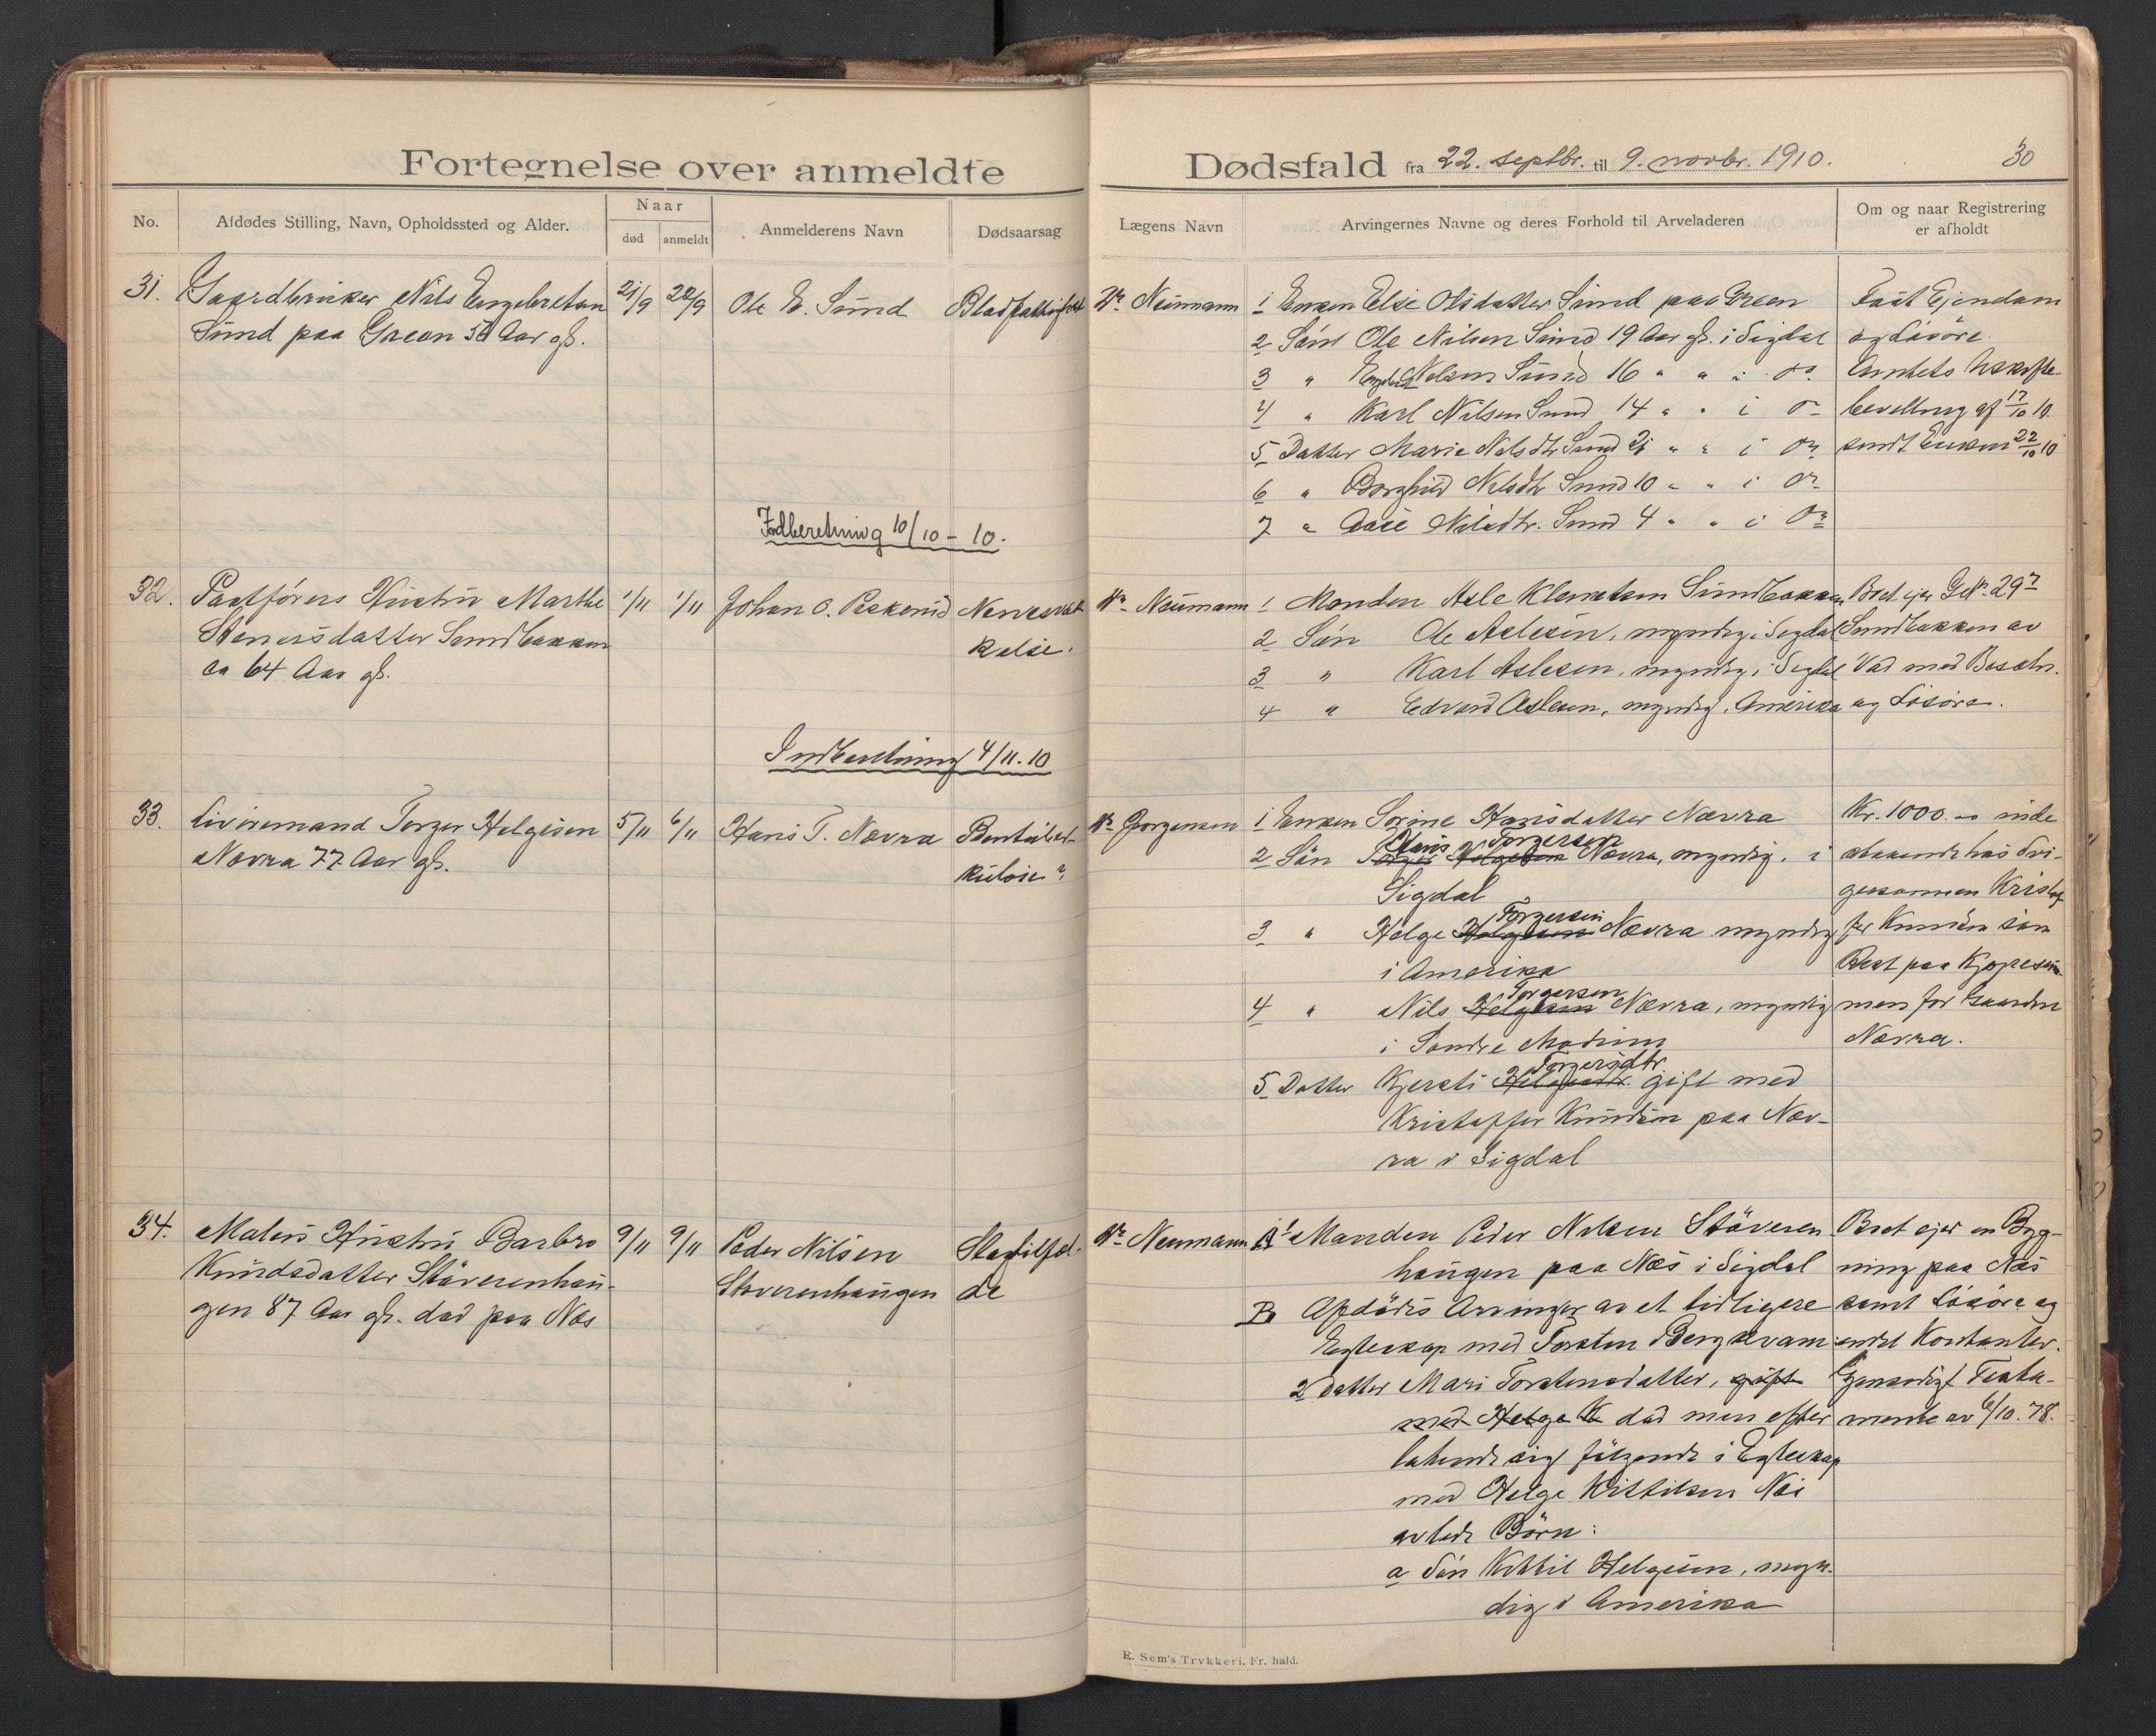 Fortegnelse over anmeldte
Dødsfald fra 22. septbr. til 9. novbr. 1910.
30
No.
Afdødes Stilling, Navn, Opholdssted og Alder.
Naar
død
anmeldt
Anmelderens Navn
Dødsaarsag
Lægens Navn
Arvingernes Navne og deres Forhold til Arveladeren
Om og naar Registrering
er afholdt
31.
Gaardbruker Nils Engebretsen
Sund paa Green Aar gl.
21/9
22/9
Ole E. Sund
Dr. Neumann
1 Enken Else Olsdatter Sund paa Green
2 Søn Ole Nilsen Sund 19 Aar gl. i Sigdal
3 " Nilsen Sund 16 " " i do
4 " Karl Nilsen Sund 14 " " i do
5 Datter Marie Nilsdtr Sund 21 " " i do
6 " Borghild Nilsdtr Sund 10 " " i do
7 " Aase Nilsdtr. Sund 4 " " i do
Fast Ejendom
og Løsøre.
Amtets Uskifte-
bevilling af 17/10 10.
sendt Enken 22/10 10
Indberetning 10/10 - 10.
32.
Postførers Hustru Marthe
Stenersdatter Sundbakken
ca 64 Aar gl.
1/11
1/11
Johan O.
Dr. Neumann
1 Manden Asle Klemetsen Sundbakken
2 Søn Ole Aslesen, myndig i Sigdal
3 " Karl Aslesen, myndig, i Sigdal
4 " Edvard Aslesen, myndig, Amerika
Boet ejer G.No. 29 7
Sundbakken av
Vad med Besætn.
og Løsøre.
Indberetning 4/11.10
33.
Livøremand Torger Helgesen
Nævra 77 Aar gl.
5/11
6/11
Hans T. Nævra
Dr. Jørgensen
1 Enken Sørine Hansdatter Nævra
Hans Torgersen
2 Søn Torger Helgesen Nævra, myndig, i
Sigdal
Torgersen
3 " Helge Helgesen Nævra myndig
i Amerika
Torgersen
4 " Nils Helgesen Nævra, myndig
i Søndre Modum
Torgersdtr.
5 Datter Kjersti gift med
Kristoffer Knudsen paa Næv-
ra i Sigdal
Kr. 1000.- inde
staaende hos Svi-
gersønnen Kristof
fer Knudsen som
Rest paa Kjøpesum-
men for Gaarden
Nævra.
34.
Malers Hustru Barbro
Knudsdatter Støverenhau-
gen 87 Aar gl. død paa Næs
9/11
9/11
Peder Nilsen
Støverenhaugen
Slagtilfæl-
de
Dr. Neumann
A 1 Manden Peder Nilsen Støveren
haugen paa Næs i Sigdal
B Afdødes Arvinger av et tidligere
Egteskap med Torsten Bergkvam:
2 Datter Mari Torstensdatter, gift
med Helge K død men efter
latende sig følgende i Egteskap
med Helge Kittilsen Næs
avlede Børn:
a Søn Kittil Helgesen, myn-
dig i Amerika
Boet ejer en Byg-
ning paa Næs
samt Løsøre og
endel Kontanter.
Gjensidigt Testa-
mente av 6/10.78.
E. Sem's Trykkeri. Fr. hald.